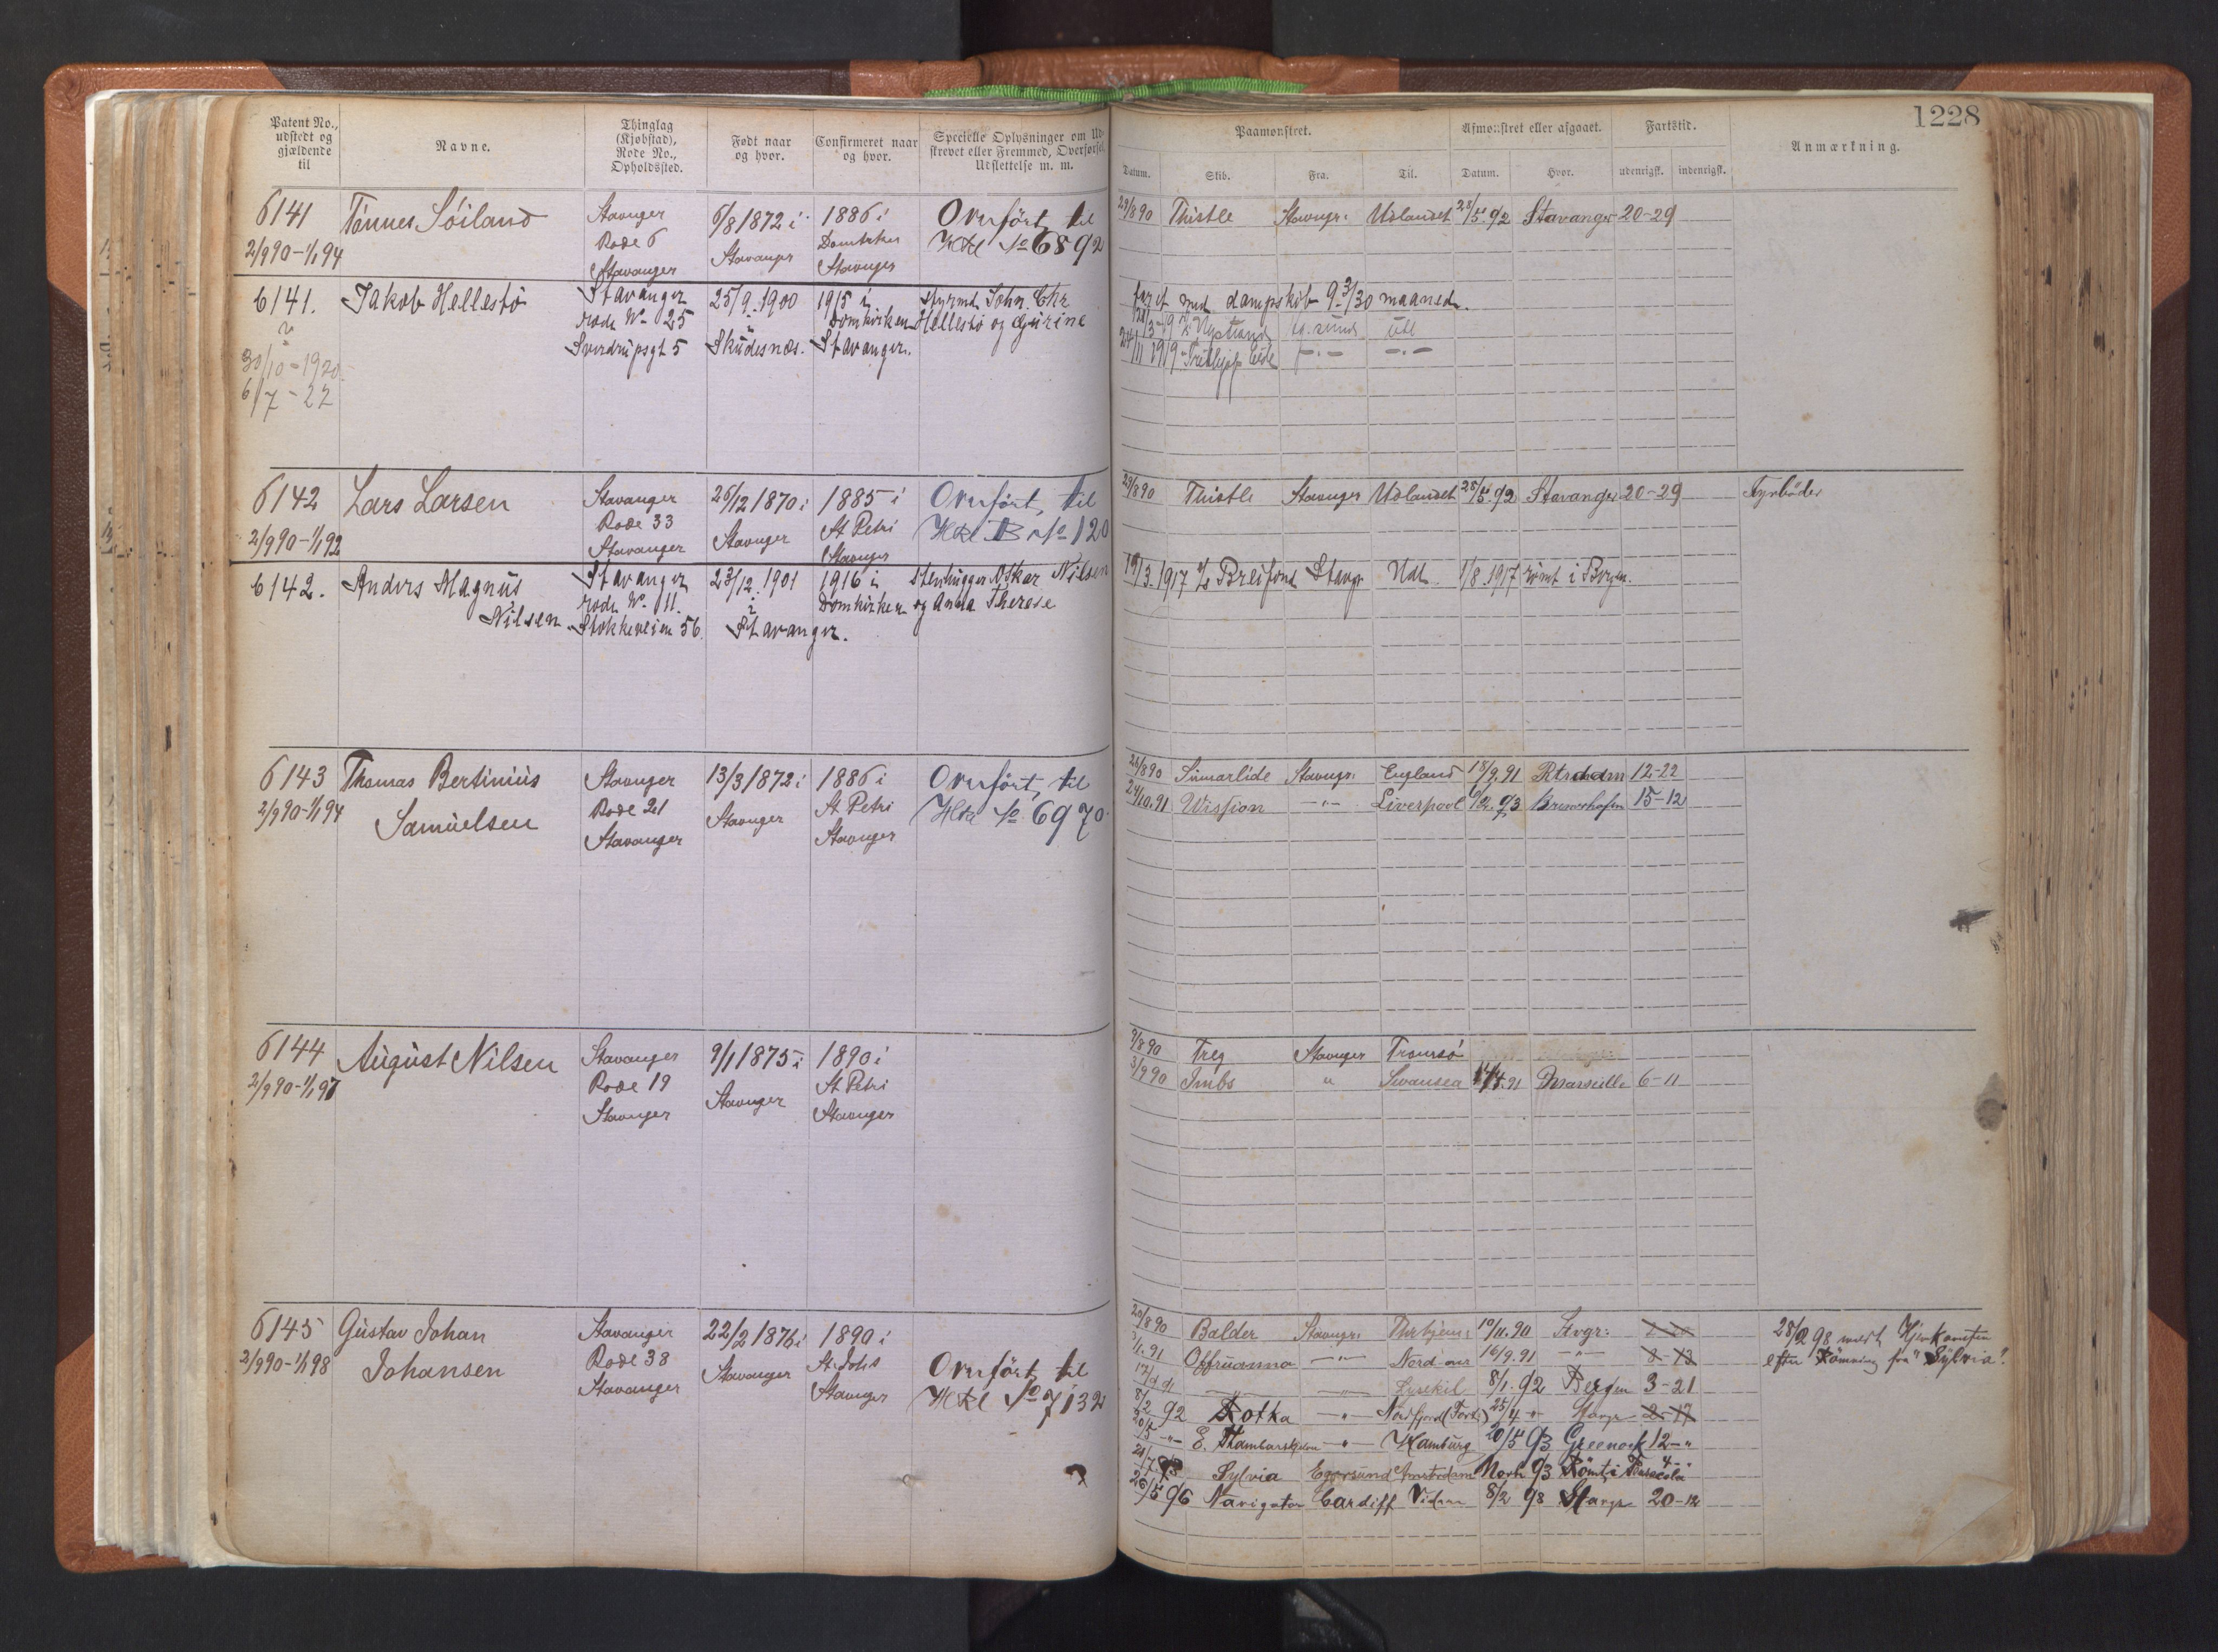 Patent No.,
udstedt og
gjældende
til
Navne.
Thinglag
(Kjøbstad),
Rode No.,
Opholdssted.
Født naar
og hvor.
Confirmeret naar
og hvor.
Specielle Oplysninger om Ud-
skrevet eller Fremmed, Overførsel,
Udslettelse m. m.
6141
2/9 90 - 1/1 94
Tönnes Söiland
Stavanger
Rode 6
Stavanger
6/8 1872 i
Stavanger
1886 i
Domkirken
Stavanger
Overfört til
HRl No 6892
6141.
30/10 - 1920
6/7 - 22
Jakob Hellestö
Stavanger
rode No 25
Sverdrupsgt 5
25/9. 1900
i
Skudesnæs.
1915 i
Domkirken
Stavanger.
Styrmd John Chr
Hellestö og Gurine
6142
2/9 90 - 1/1 92
Lars Larsen
Stavanger
Rode 33
Stavanger
26/12 1870 i
Stavanger
1885 i
St Petri
Stavanger
Overfört til
HRl B No 120
6142.
Anders Magnus
Nilsen
Stavanger
rode No 11.
Stokkeveien 56.
23/12. 1901
i
Stavanger.
1916 i
Domkirken
Stenhugger Oskar Nilsen
og Anna Therese
6143
2/9 90 - 1/1 94
Thomas Bertinius
Samuelsen
Stavanger
Rode 21
Stavanger
13/3 1872 i
Stavanger
1886 i
St Petri
Stavanger
Overfört til
HRl No 6970
6144
2/9 90 - 1/1 97
August Nilsen
Stavanger
Rode 19
Stavanger
9/1 1875 i
Stavanger
1890 i
St Petri
Stavanger
6145
2/9 90 - 1/1 98
Gustav Johan
Johansen
Stavanger
Rode 38
Stavanger
22/2 1876 i
Stavanger
1890 i
St. Johs
Stavanger
Overfört til
HRl No 7132
1228
Paamønstret.
Afmønstret eller afgaaet.
Fartstid.
Anmærkning.
Datum. Skib. Fra. Til. Datum. Hvor. udenrigsk. indenrigsk.
29/8 90 Thistle Stavngr: Udlandet 28/5. 92 Stavanger 20-29
faret med dampskib 9-3/30 maaned.
24/11 1919
29/8 90 Thistle Stavnger Udlandet 28/5. 92 Stavanger 20-29 Fyrböder
19/3. 1917 Breifond Stavgr Udl. 1/8. 1917 römt i Bergen.
26/8 90 Sumarlide Stavngr: England 18/9. 91 12-22
24/10. 91 Wission -"- Liverpool 93 Bremerhafen 15-12
9/8 90 Freg Stavnger Tromsö
3/9 90 Imbs " Swansea 14/4. 91 Marseille 6-11
29/8 90 Balder Stavngr: 10/11. 90 Stvgr:
91 Offruanna -"- 16/9. 91 -"- 8-13
-"- Lysekil 8/1. 92 Bergen 3-21
8/2 92 Rotka -"- 25/4 " Stavgr 2-17
E. -"- Hamburg 20/5 93 Greenock 12-"
Sylvia Egersund Amsterdam Novb 93 Römt i Pensacola 4-"
26/5 96 Navigator Cardiff 8/2 98 Stavgr 20-12
28/2 98 mødt Hjemkomsten
efter Römning fra "Sylvia".